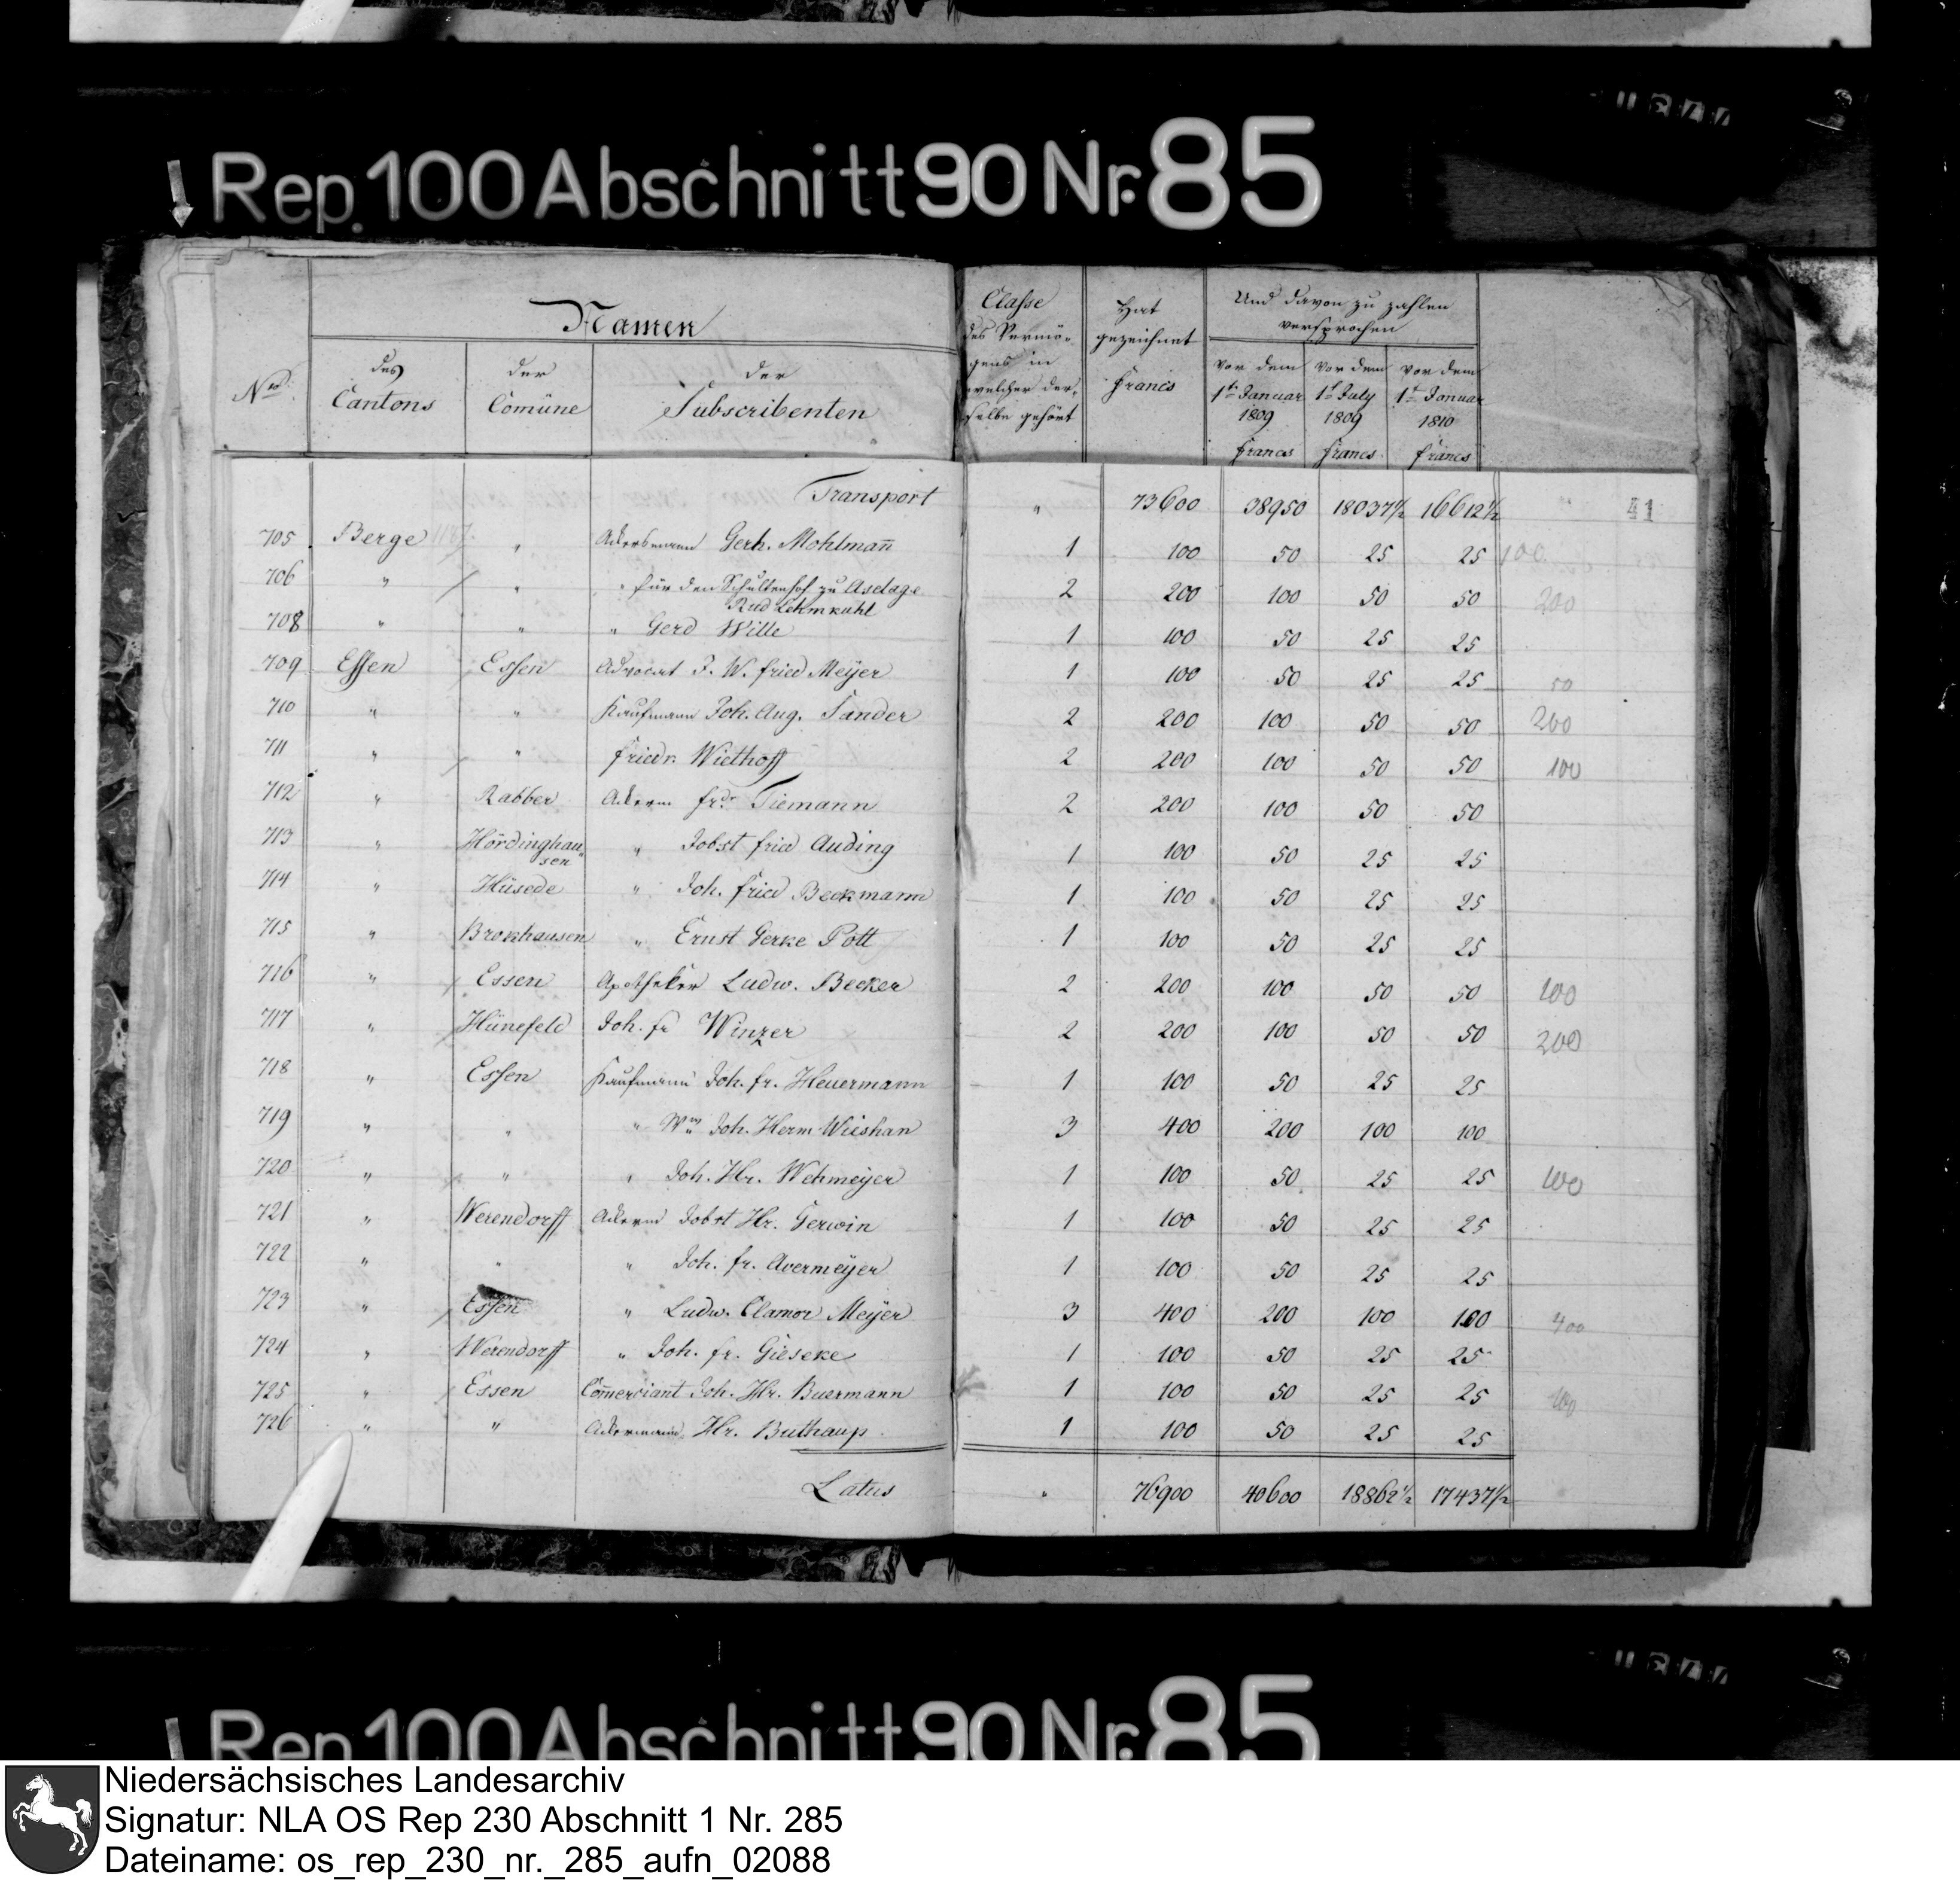 Rep. 100 Abschnitt 90 Nr. 85
Namen
Nro.
des Cantons
der Comüne
der Subscribenten
Classe des Vermö-
gens in
welcher der-
selbe gehört
Hat gezeichnet Francs
Und davon zu zahlen
versprochen
vor dem 1ten Januar 1809 Francs
vor dem 1t July 1809 Francs
vor dem 1t Januar 1810 Francs
Transport " 73600 38950 18037½ 16612½ 41
705 Berge " Ackersmann Gerh. Mohlmañ 1 100 50 25 25 100
706 " " " für den Schultenhof zu Aselage 2 200 100 50 50 200
Rud Lehmkuhl
708 " " " Gerd Wille 1 100 50 25 25
709 Essen Essen Advocat F. W. Fried Meÿer 1 100 50 25 25 50
710 " " Kaufmann Joh. Aug. Sander 2 200 100 50 50 200
711 " " Friedr. Wiethoff 2 200 100 50 50 100
712 " Rabber Ackerm Frdr Tiemann 2 200 100 50 50
713 " Hördinghau"
sen " Jobst Fried Auding 1 100 50 25 25
714 " Hüsede " Joh. Fried Beckmann 1 100 50 25 25
715 " Brokhausen " Ernst Gerke Pott 1 100 50 25 25
716 " Essen Apotheker Ludw. Becker 2 200 100 50 50 100
717 " Hünefeld Joh. Fr Winzer 2 200 100 50 50 200
718 " Essen Kaufmann Joh. Fr. Heuermann 1 100 50 25 25
719 " " " Ww Joh. Herm Wieshan 3 400 200 100 100
720 " " " Joh. Hr. Wehmeÿer 1 100 50 25 25 100
721 " Werendorff Ackerm Jobst Hr. Gerwin 1 100 50 25 25
722 " " " Joh. Fr. Avermeÿer 1 100 50 25 25
723 " Essen " Ludw. Clamor Meÿer 3 400 200 100 100 400
724 " Werendorff " Joh. Fr. Gieseke 1 100 50 25 25
725 " Essen Com̃erciant Joh. Hr. Buermann 1 100 50 25 25 100
726 " " Ackermann Hr. Buthaup 1 100 50 25 25
Latus " 76900 40600 18862½ 17437½
Rep. 100 Abschnitt 90 Nr. 85
Niedersächsisches Landesarchiv
Signatur: NLA OS Rep 230 Abschnitt 1 Nr. 285
Dateiname: os_rep_230_nr._285_aufn_02088